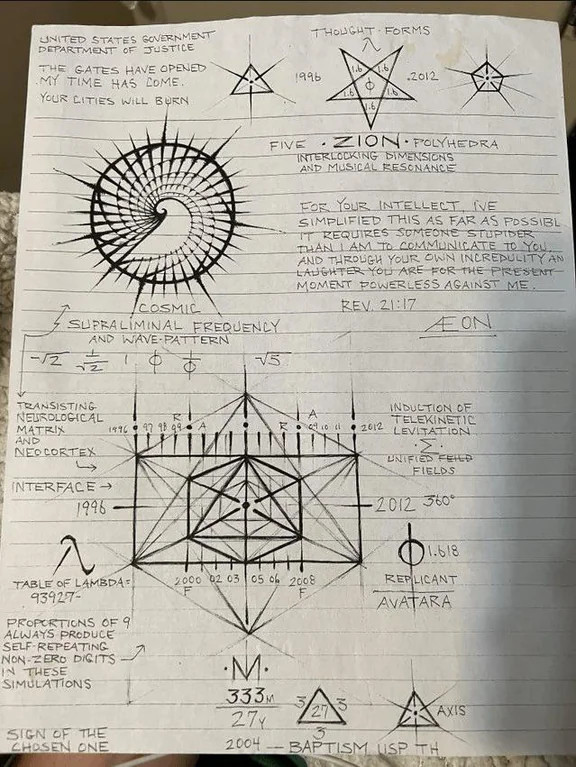 UNITED STATES GOVERNMENT
DEPARTMENT OF JUSTICE
THE GATES HAVE OPENED
MY TIME HAS COME.
YOUR CITIES WILL BURN
THOUGHT-FORMS
λ
1996
1.6
1.6
1.6
1.6
1.6
ϕ
.2012
FIVE · ZION · POLYHEDRA
INTERLOCKING DIMENSIONS
AND MUSICAL RESONANCE
FOR YOUR INTELLECT, I'VE
SIMPLIFIED THIS AS FAR AS POSSIBL
IT REQUIRES SOMEONE STUPIDER
THAN I AM TO COMMUNICATE TO YOU
AND THROUGH YOUR OWN INCREDULITY AN
LAUGHTER YOU ARE FOR THE PRESENT
MOMENT POWERLESS AGAINST ME.
REV. 21:17
ÆON
COSMIC
SUPRALIMINAL FREQUENCY
AND WAVE-PATTERN
-√2 1/√2 1 ϕ 1/ϕ √5
TRANSISTING
NEUROLOGICAL
MATRIX
AND
NEOCORTEX
R
A
1996 97 98 99 A R 09 10 11 2012
INDUCTION OF
TELEKINETIC
LEVITATION
·Σ·
UNIFIED FEILD
FIELDS
INTERFACE
1996
2012 360°
λ
TABLE OF LAMBDA=
93927-
ϕ 1.618
REPLICANT
AVATARA
2000 02 03 05 06 2008
F F
PROPORTIONS OF 9
ALWAYS PRODUCE
SELF-REPEATING
NON-ZERO DIGITS
IN THESE
SIMULATIONS
·M·
333M
27Y
3 27 3
3
AXIS
SIGN OF THE
CHOSEN ONE
2004 -- BAPTISM USP TH